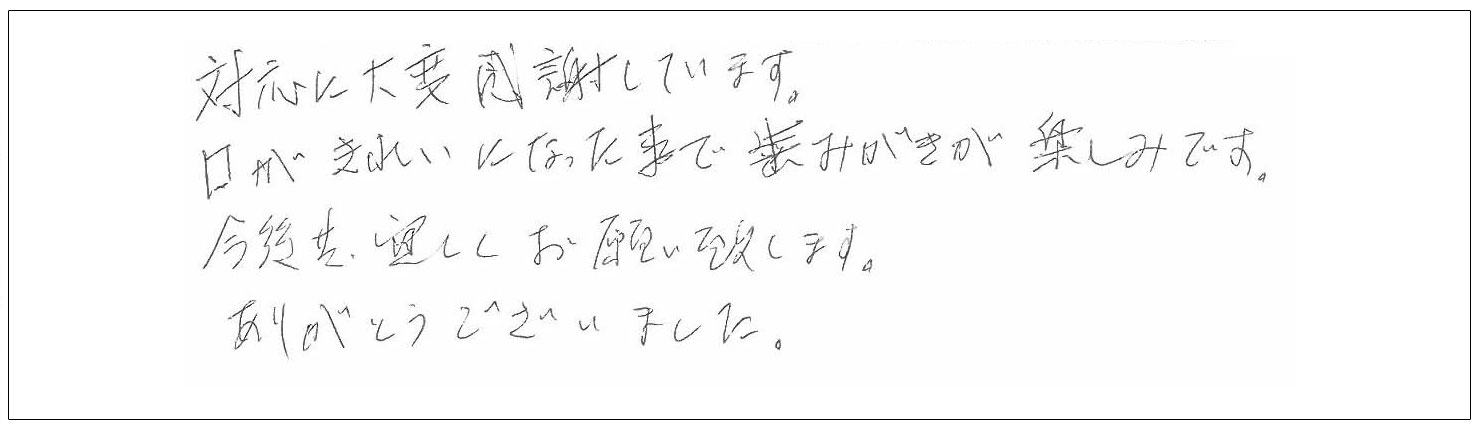 対応に大変感謝しています。
口がきれいになった事で歯みがきが楽しみです。
今後共、宜しくお願い致します。
ありがとうございました。